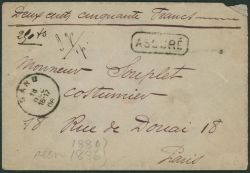 Deux cents cinquante Francs
250 fs
ASSURÉ
Monsieur Souplet
costumier
GAND
18
16-17
18 Rue de Douai 18
Paris
1886